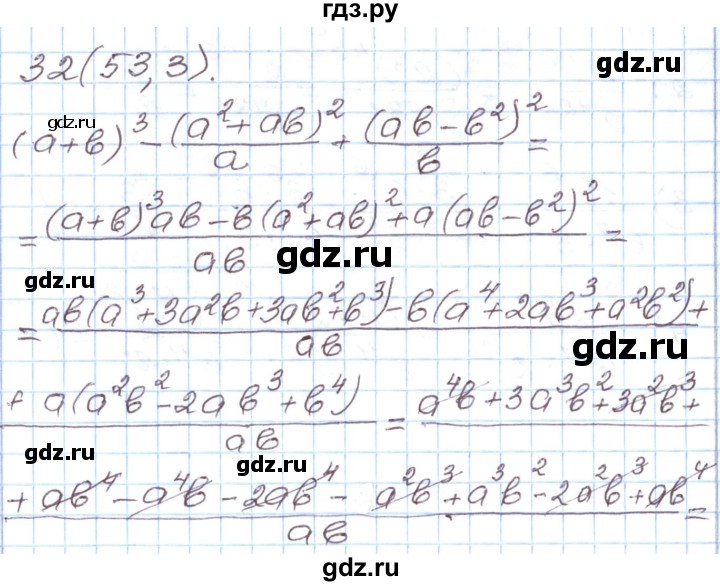 гдз.ру
32(53,3).
gdz.ru
gdz.ru
(a+b)^3 - (a^2+ab)^2/a + (ab-b^2)^2/b =
= ((a+b)^3ab - b(a^2+ab)^2 + a(ab-b^2)^2)/ab =
gdz.ru
gdz.ru
= (ab(a^3+3a^2b+3ab^2+b^3) - b(a^4+2ab^3+a^2b^2)+)/ab
gdz.ru
(+ a(a^2b^2-2ab^3+b^4))/ab = a^4b+3a^3b^2+3a^2b^3+
gdz.ru
gdz.ru
(+ab^4-a^4b-2ab^4-a^2b^3+a^3b^2-2a^2b^3+ab^4)/ab =
gdz.ru